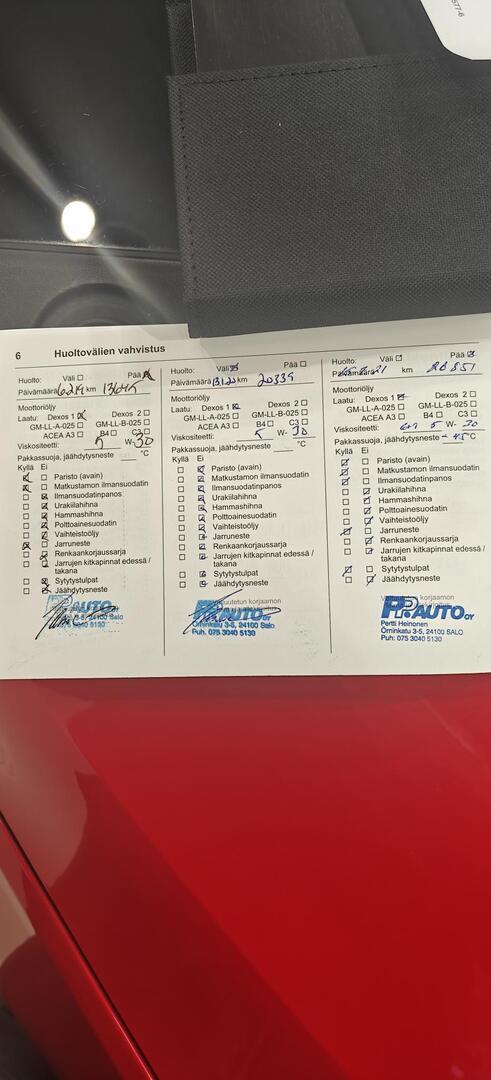 577-6
6 Huoltovälien vahvistus
Huolto: Väli ☐ Pää ☒
Päivämäärä 6219 km 13645
Moottoriöljy
Laatu: Dexos 1 ☒ Dexos 2 ☐
GM-LL-A-025 ☐ GM-LL-B-025 ☐
ACEA A3 ☐ B4 ☐ C3 ☐
Viskositeetti: 5 W- 30
Pakkassuoja, jäähdytysneste ___ °C
Kyllä Ei
☒ ☐ Paristo (avain)
☒ ☐ Matkustamon ilmansuodatin
☐ ☒ Ilmansuodatinpanos
☐ ☒ Urakiilahihna
☐ ☒ Hammashihna
☐ ☒ Polttoainesuodatin
☐ ☒ Vaihteistoöljy
☒ ☐ Jarruneste
☐ ☒ Renkaankorjaussarja
☐ ☒ Jarrujen kitkapinnat edessä /
takana
☐ ☒ Sytytystulpat
☐ ☒ Jäähdytysneste
AUTO OY
3-5, 24100 Salo
5130
Huolto: Väli ☒ Pää ☐
Päivämäärä km 20339
Moottoriöljy
Laatu: Dexos 1 ☒ Dexos 2 ☐
GM-LL-A-025 ☐ GM-LL-B-025 ☐
ACEA A3 ☐ B4 ☐ C3 ☐
Viskositeetti: 5 W- 30
Pakkassuoja, jäähdytysneste ___ °C
Kyllä Ei
☐ ☒ Paristo (avain)
☐ ☒ Matkustamon ilmansuodatin
☐ ☒ Ilmansuodatinpanos
☐ ☒ Urakiilahihna
☐ ☒ Hammashihna
☐ ☒ Polttoainesuodatin
☐ ☒ Vaihteistoöljy
☐ ☒ Jarruneste
☐ ☒ Renkaankorjaussarja
☐ ☒ Jarrujen kitkapinnat edessä /
takana
☐ ☒ Sytytystulpat
☐ ☒ Jäähdytysneste
Valtuutetun korjaamon
AUTO OY
Örninkatu 3-5, 24100 Salo
Puh. 075 3040 5130
Huolto: Väli ☐ Pää ☒
Päivämäärä km
Moottoriöljy
Laatu: Dexos 1 ☒ Dexos 2 ☐
GM-LL-A-025 ☐ GM-LL-B-025 ☐
ACEA A3 ☐ B4 ☐ C3 ☐
Viskositeetti: 5 W- 30
Pakkassuoja, jäähdytysneste -45°C
Kyllä Ei
☒ ☐ Paristo (avain)
☒ ☐ Matkustamon ilmansuodatin
☒ ☐ Ilmansuodatinpanos
☐ ☒ Urakiilahihna
☐ ☒ Hammashihna
☐ ☒ Polttoainesuodatin
☐ ☒ Vaihteistoöljy
☒ ☐ Jarruneste
☐ ☒ Renkaankorjaussarja
☐ ☒ Jarrujen kitkapinnat edessä /
takana
☒ ☐ Sytytystulpat
☐ ☒ Jäähdytysneste
korjaamon
AUTO OY
Pertti Heinonen
Örninkatu 3-5, 24100 SALO
Puh: 075 3040 5130